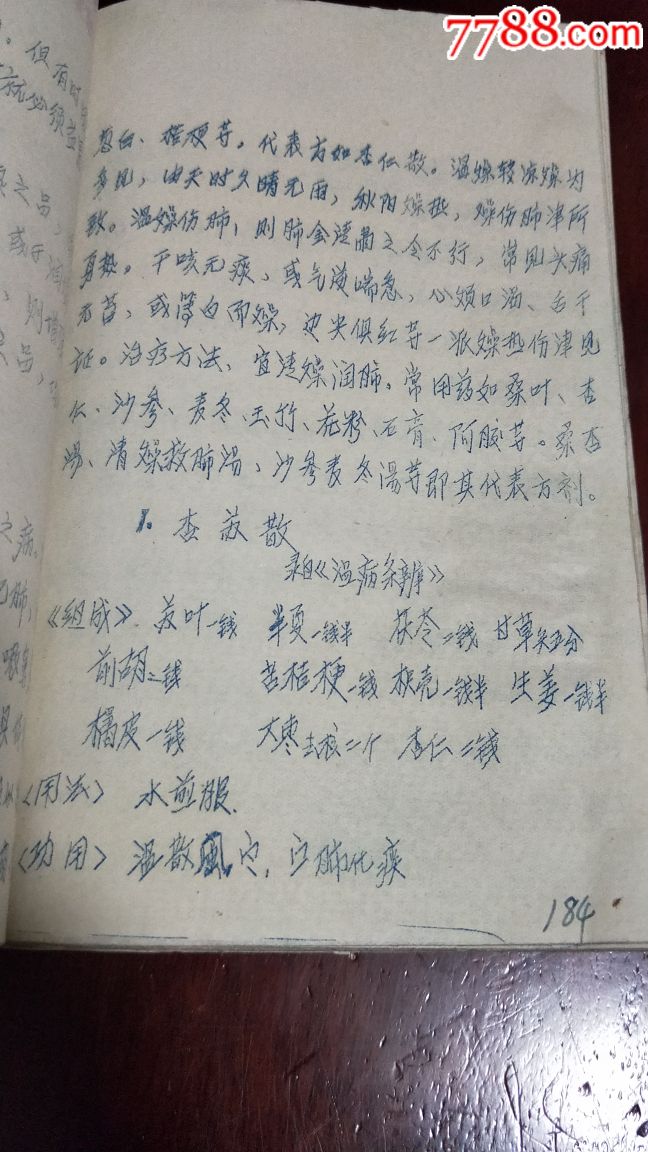 7788.com
葱白、桔梗等。代表方如杏仁散。温燥较凉燥为
多见，由天时久晴无雨，秋阳燥热，燥伤肺津所
致。温燥伤肺，则肺金清肃之令不行，常见头痛
身热。干咳无痰，或气逆喘急，心烦口渴、舌干
无苔，或薄白而燥，边尖俱红等一派燥热伤津见
证。治疗方法、宜清燥润肺。常用药如桑叶、杏
仁、沙参、麦冬、玉竹、花粉、石膏、阿胶等。桑杏
汤、清燥救肺汤、沙参麦冬湯等即其代表方剂。
1. 杏苏散
录自《温病条辨》
《组成》苏叶一钱 半夏一钱半 茯苓二钱 甘草炙五分
前胡二钱 苦桔梗一钱 枳壳一钱半 生姜一钱半
橘皮一钱 大枣去核二个 杏仁二钱
《用法》 水煎服.
《功用》 温散風寒，宣肺化痰
184
但有时
就必须
之品，
或于润
，则
之病。
肺，